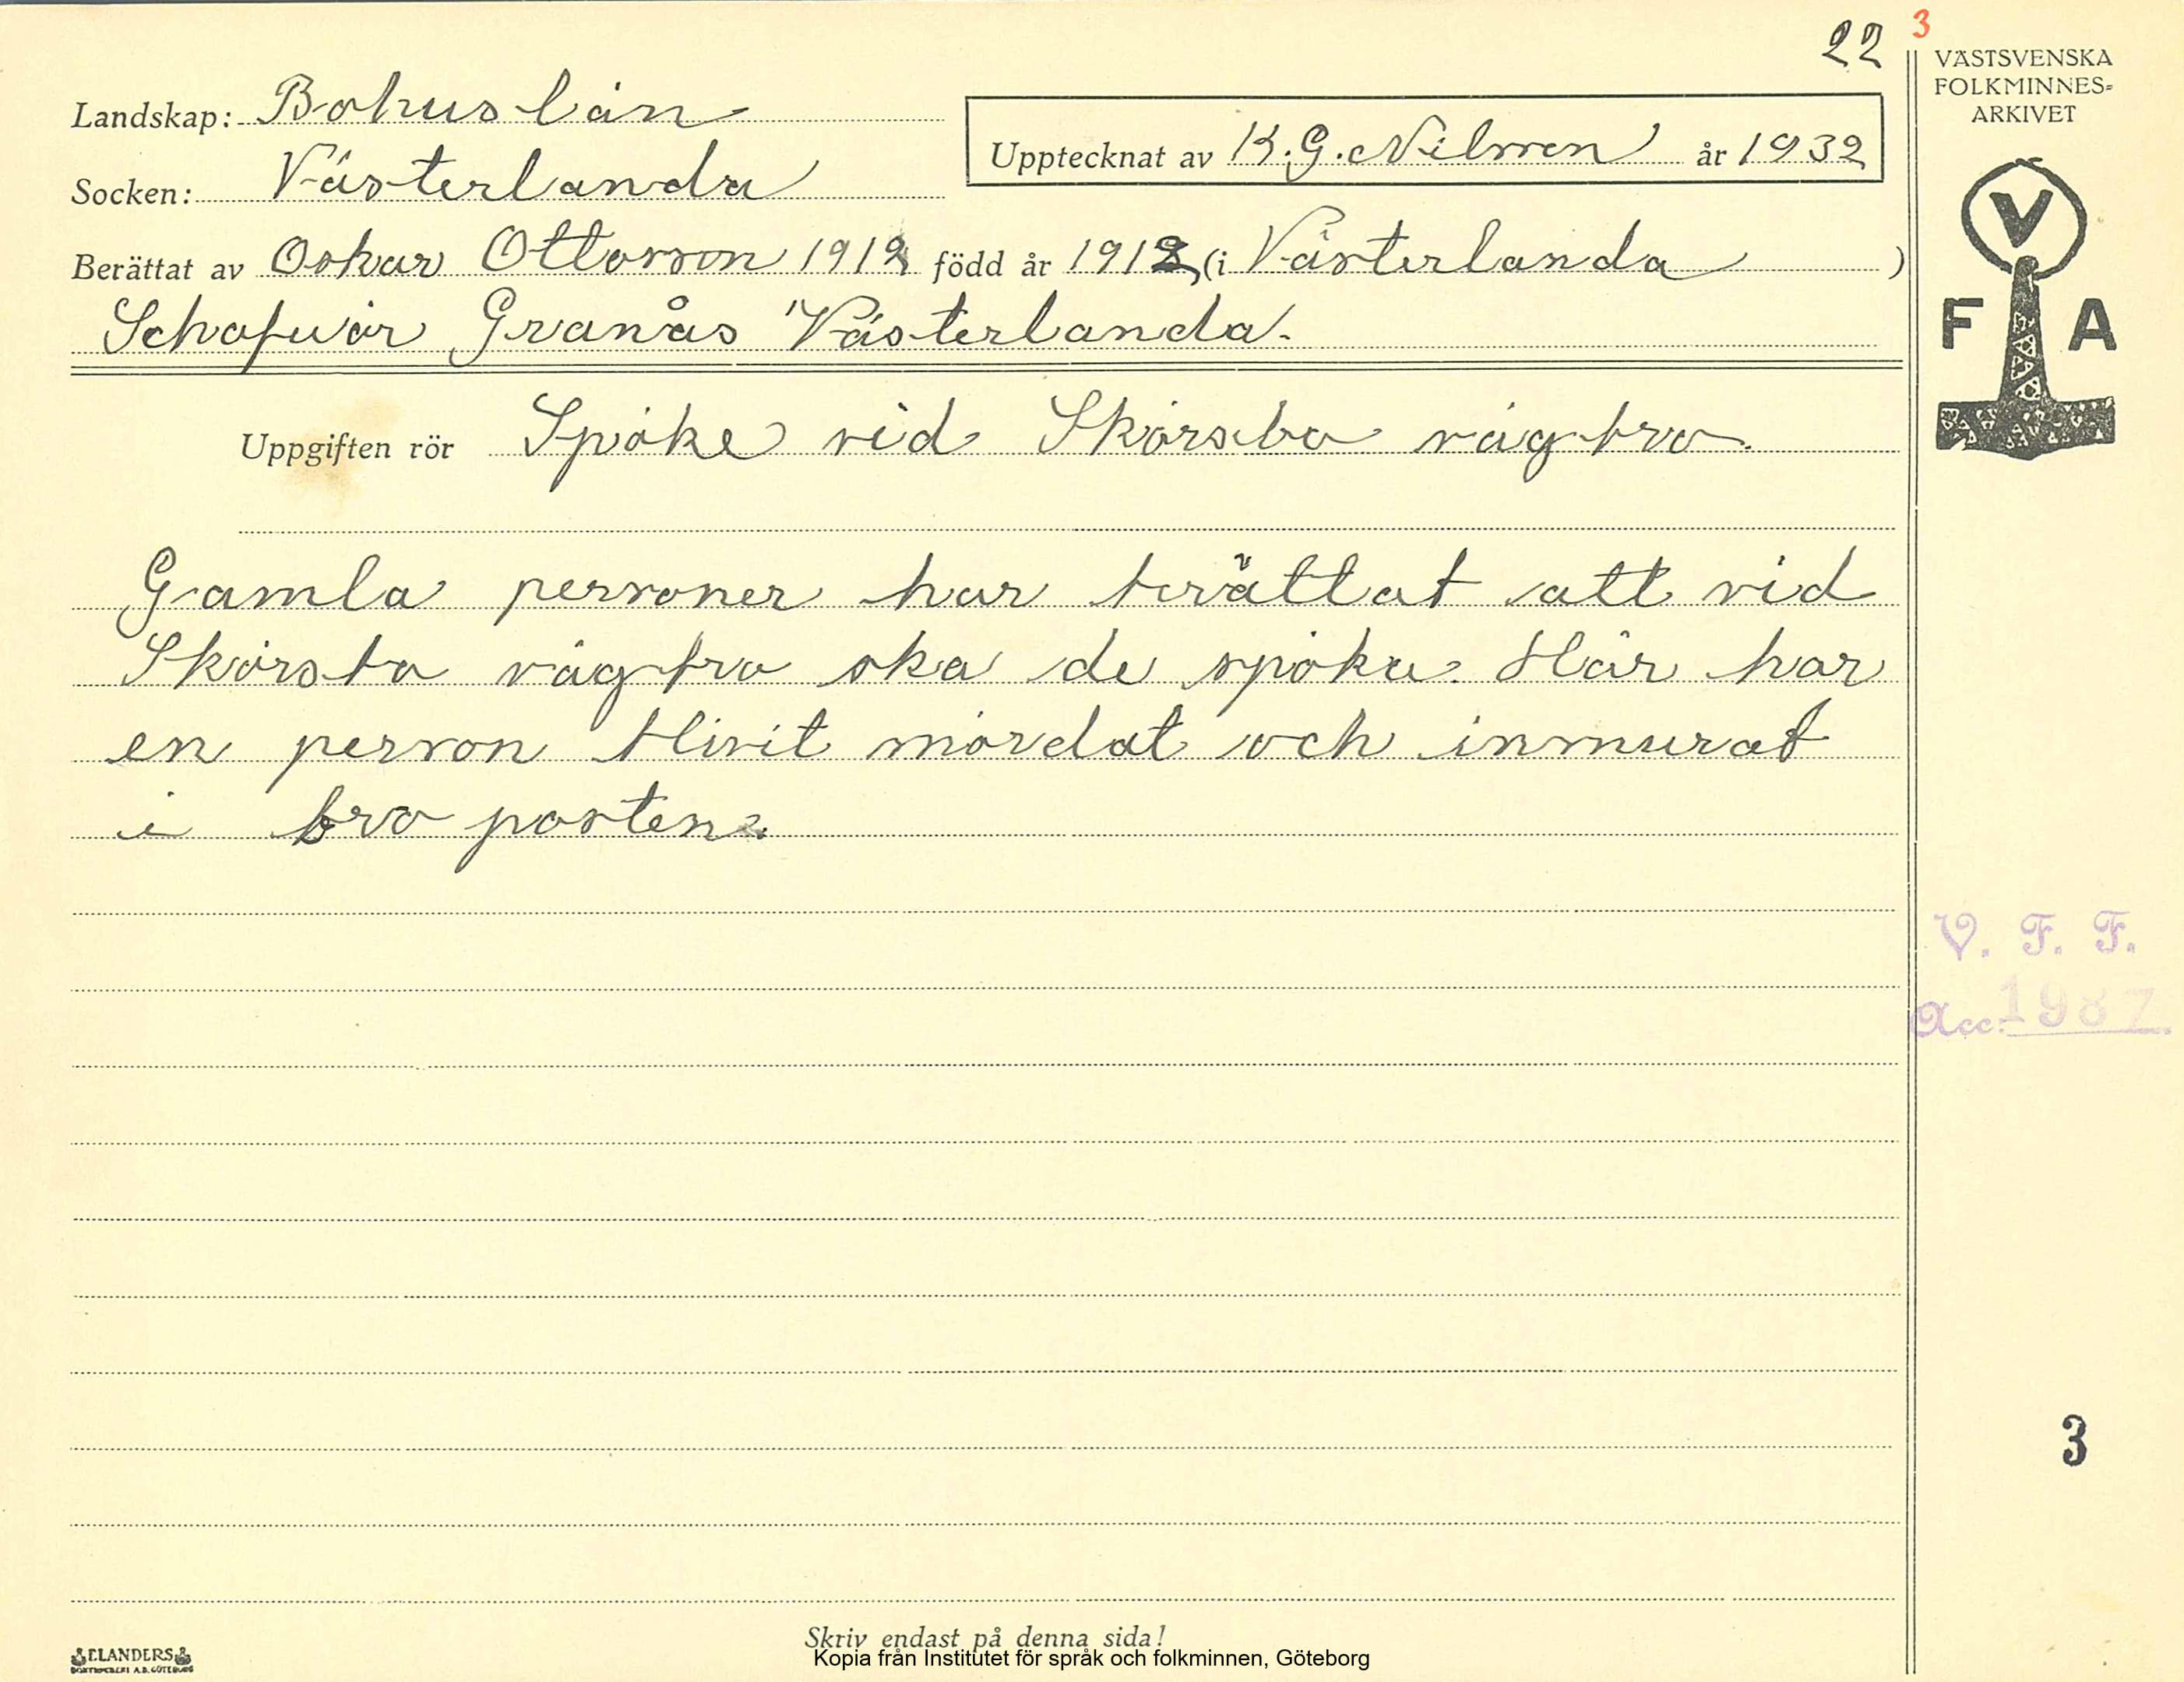 22 3
VÄSTSVENSKA
FOLKMINNES=
ARKIVET
Landskap: Bohuslän
Upptecknat av K.G. Nilsson år 1932
Socken: Västerlanda
Berättat av Oskar Ottosson 1912 född år 1912 (i Västerlanda )
Schafuör Granås Västerlanda.
V
F A
Uppgiften rör Spöke vid Skörsbo vägbro.
Gamla personer har berättat att vid
Skörsbo vägbro ska de spöka. Här har
en person blivit mördat och inmurat
i bro porten.
V. F. F.
Acc: 1987
3
Skriv endast på denna sida!
ELANDERS
BOKTRYCKERI A.B. GÖTEBORG
Kopia från Institutet för språk och folkminnen, Göteborg